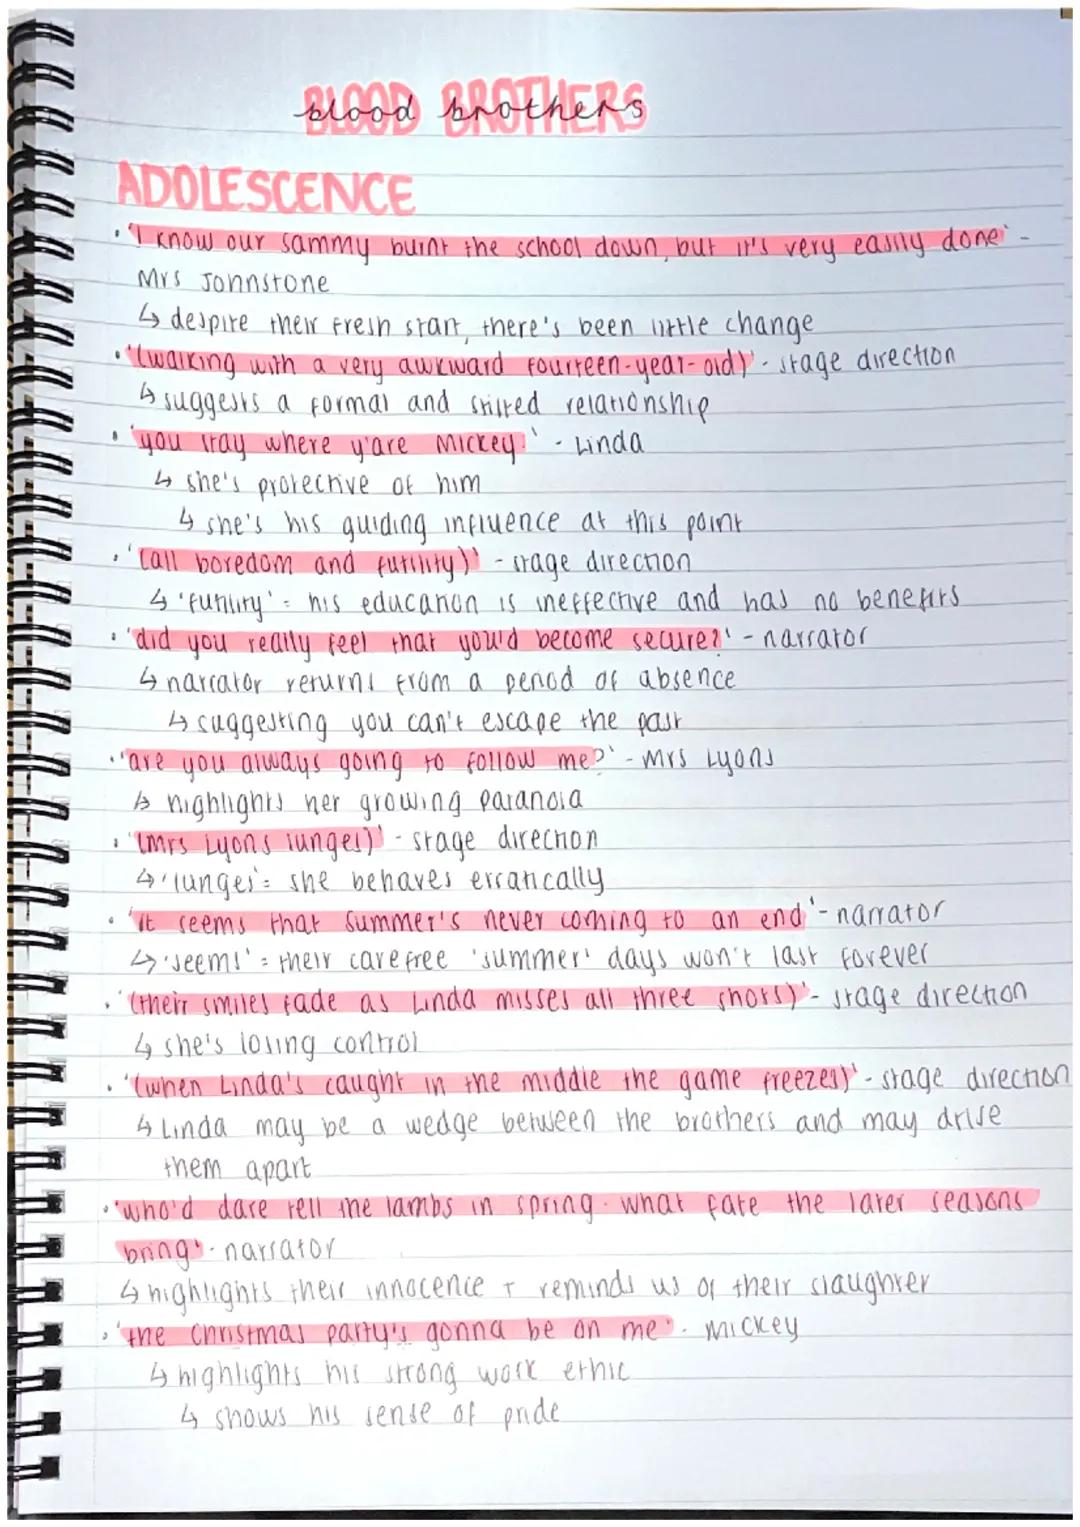 BLOOD BROTHERS
blood brothers
ADOLESCENCE
• 'I know our Sammy burnt the school down, but it's very easily done' -
Mrs Johnstone
↳ despite their fresh start, there's been little change
• '(walking with a very awkward fourteen-year-old)' - stage direction
↳ suggests a formal and stilted relationship
• 'you stay where y'are Mickey.' - Linda
↳ she's protective of him
↳ she's his guiding influence at this point
• '(all boredom and futility)' - stage direction
↳ 'futility' = his education is ineffective and has no benefits
• 'did you really feel that you'd become secure?' - narrator
↳ narrator returns from a period of absence
↳ suggesting you can't escape the past
• 'are you always going to follow me?' - Mrs Lyons
↳ highlights her growing paranoia
• '(Mrs Lyons lunges)' - stage direction
↳ 'lunges' = she behaves erratically
• 'it seems that summer's never coming to an end' - narrator
↳ 'seems' = their carefree 'summer' days won't last forever
• '(their smiles fade as Linda misses all three shots)' - stage direction
↳ she's losing control
• '(when Linda's caught in the middle the game freezes)' - stage direction
↳ Linda may be a wedge between the brothers and may drive
them apart
• 'who'd dare tell the lambs in spring. what fate the later seasons
bring' - narrator
↳ highlights their innocence + reminds us of their slaughter
• 'the Christmas party's gonna be on me' - Mickey
↳ highlights his strong work ethic
↳ shows his sense of pride